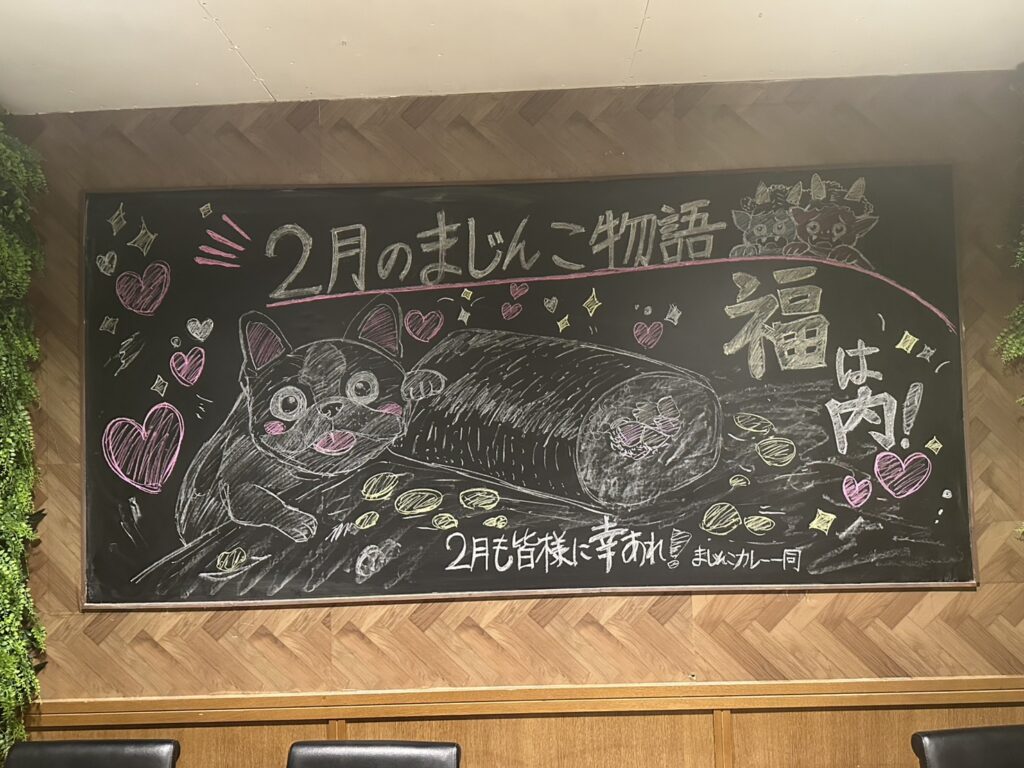 2月のまじんこ物語
福
は
内!
2月も皆様に幸あれ! まじんこカレー一同